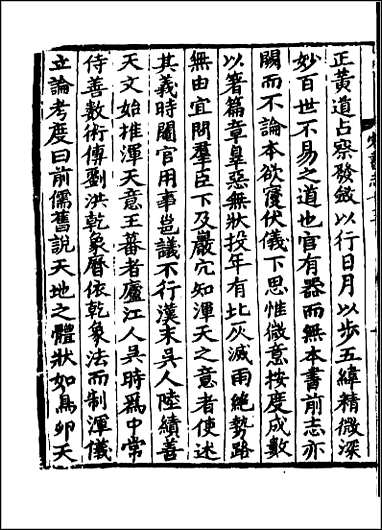 正黃道占察發斂以行日月以步五緯精微深
妙百世不易之道也官有器而無本書前志亦
闕而不論本欲寢伏儀下思惟微意按度成數
以著篇章辠惡無狀投年有北灰滅雨絶勢路
無由宜問羣臣下及巖穴知渾天之意者使述
其義時閹官用事邕議不行漢末吳人陸績善
天文始推渾天意王蕃者廬江人吳時爲中常
侍善數術傳劉洪乾象曆依乾象法而制渾儀
立論考度曰前儒舊說天地之體狀如鳥卵天